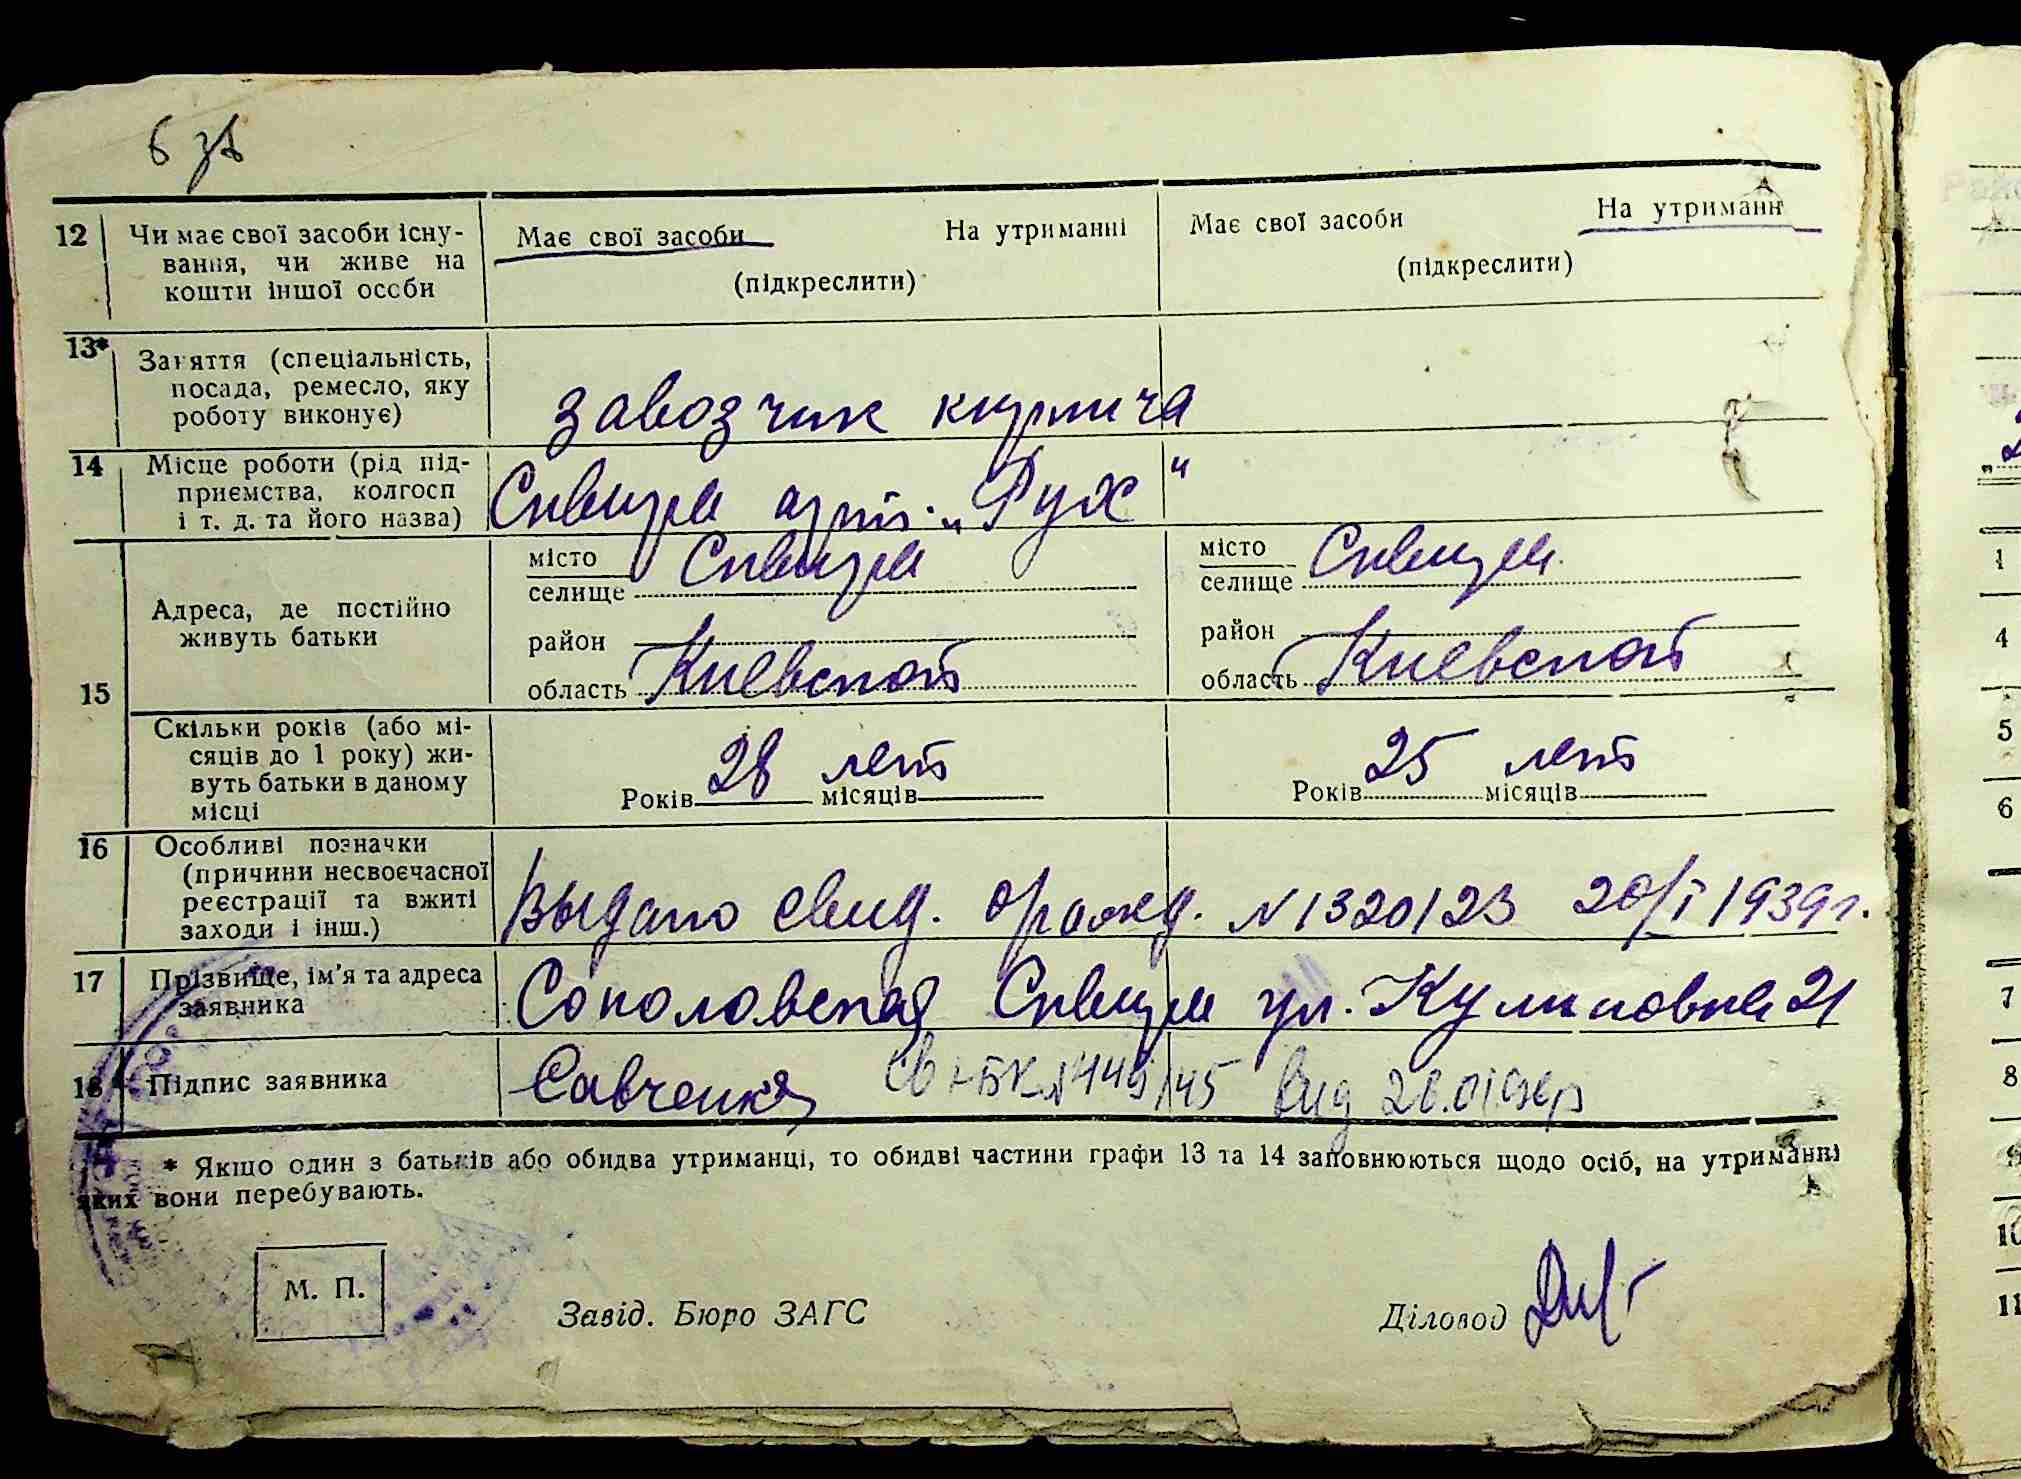 12 Чи має свої засоби існу-
вання, чи живе на
кошти іншої особи
Має свої засоби На утриманні
(підкреслити)
Має свої засоби На утриманн
(підкреслити)
13* Заняття (спеціальність,
посада, ремесло, яку
роботу виконує)
завозчик кирпича
14 Місце роботи (рід під-
приємства, колгосп
і т. д. та його назва)
Сквира арт. „Рух"
15
Адреса, де постійно
живуть батьки
місто Сквира
селище
район
область Киевской
місто Сквира
селище
район
область Киевской
Скільки років (або мі-
сяців до 1 року) жи-
вуть батьки в даному
місці
Років 28 лет місяців
Років 25 лет місяців
16 Особливі позначки
(причини несвоєчасної
реєстрації та вжиті
заходи і інш.)
Выдано свид. о рожд. N 1320123 20/I 1939 г.
17 Прізвище, ім'я та адреса
заявника
Соколовская Сквира ул. 21
18 Підпис заявника
* Якшо один з батьків або обидва утриманці, то обидві частини графи 13 та 14 заповнюються щодо осіб, на утриманні
яких вони перебувають.
М. П.
Завід. Бюро ЗАГС
Діловод
1
4
5
6
7
8
10
11